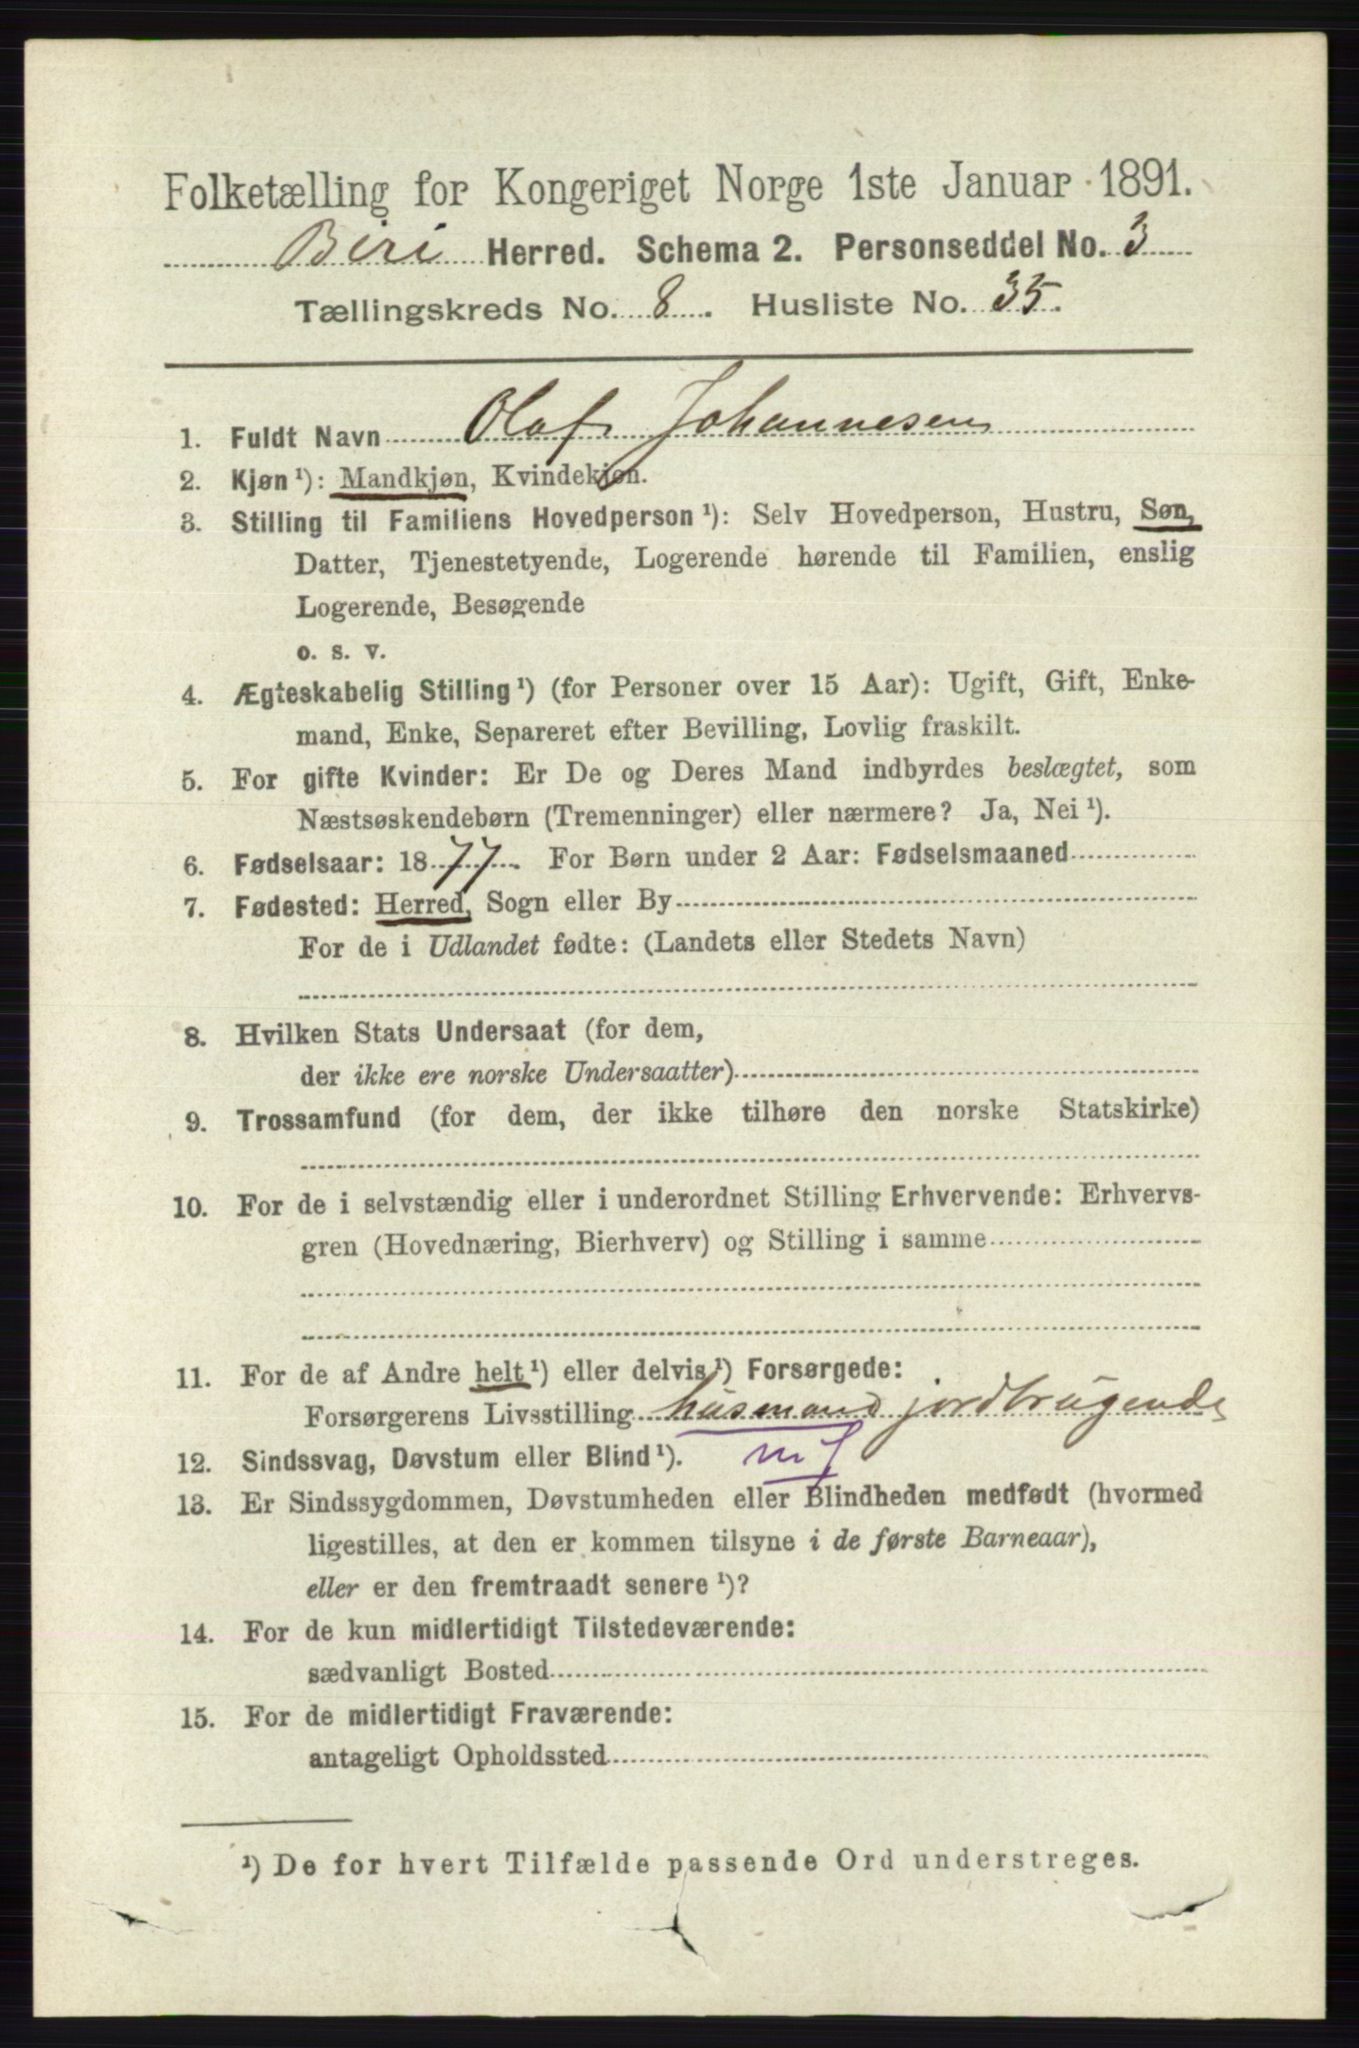 Folketælling for Kongeriget Norge 1ste Januar 1891.
Biri Herred. Schema 2. Personseddel No. 3
Tællingskreds No. 8. Husliste No. 35.
1. Fuldt Navn Olaf Johannesen
2. Kjøn ¹): Mandkjøn, Kvindekjøn.
3. Stilling til Familiens Hovedperson ¹): Selv Hovedperson, Hustru, Søn,
Datter, Tjenestetyende, Logerende hørende til Familien, enslig
Logerende, Besøgende
o. s. v.
4. Ægteskabelig Stilling ¹) (for Personer over 15 Aar): Ugift, Gift, Enke-
mand, Enke, Separeret efter Bevilling, Lovlig fraskilt.
5. For gifte Kvinder: Er De og Deres Mand indbyrdes beslægtet, som
Næstsøskendebørn (Tremenninger) eller nærmere? Ja, Nei ¹).
6. Fødselsaar: 1877. For Børn under 2 Aar: Fødselsmaaned
7. Fødested: Herred, Sogn eller By
For de i Udlandet fødte: (Landets eller Stedets Navn)
8. Hvilken Stats Undersaat (for dem,
der ikke ere norske Undersaatter)
9. Trossamfund (for dem, der ikke tilhøre den norske Statskirke)
10. For de i selvstændig eller i underordnet Stilling Erhvervende: Erhvervs-
gren (Hovednæring, Bierhverv) og Stilling i samme
11. For de af Andre helt ¹) eller delvis ¹) Forsørgede:
Forsørgerens Livsstilling husmand jordbrugende
12. Sindssvag, Døvstum eller Blind ¹). mf
13. Er Sindssygdommen, Døvstumheden eller Blindheden medfødt (hvormed
ligestilles, at den er kommen tilsyne i de første Barneaar),
eller er den fremtraadt senere ¹)?
14. For de kun midlertidigt Tilstedeværende:
sædvanligt Bosted
15. For de midlertidigt Fraværende:
antageligt Opholdssted
¹) De for hvert Tilfælde passende Ord understreges.